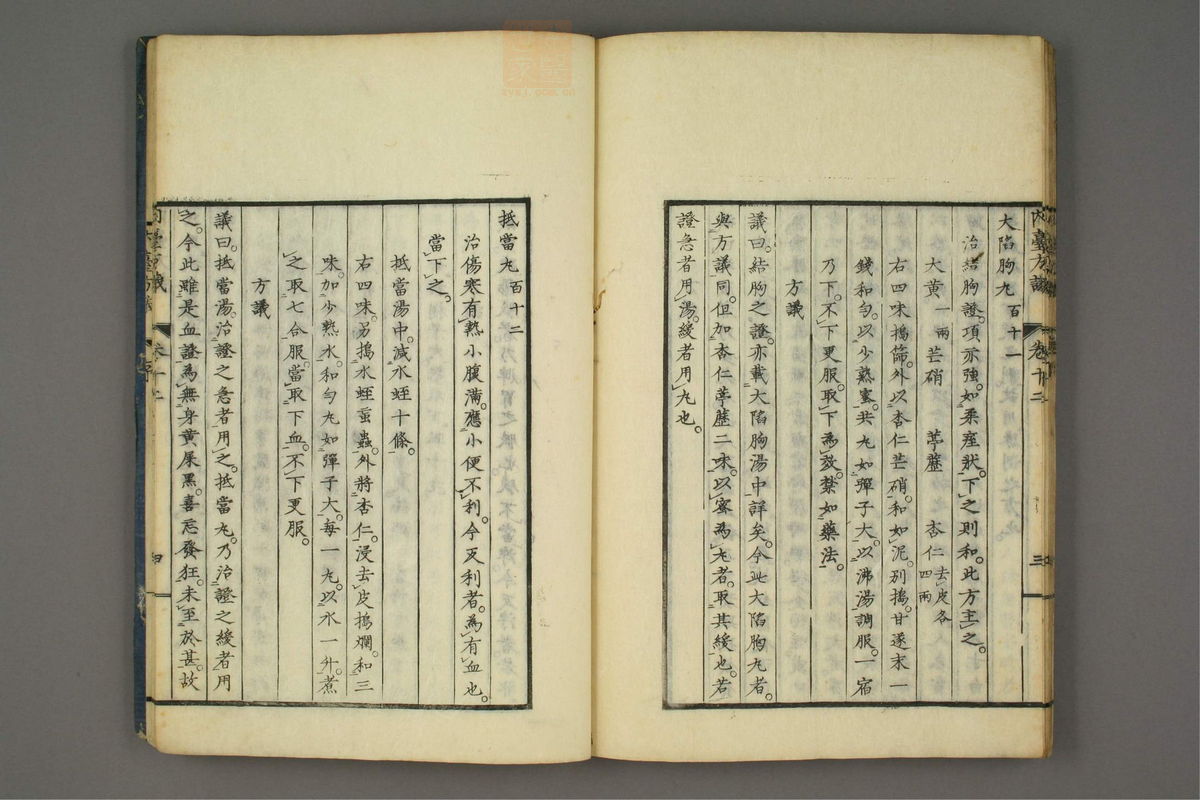 內臺方議 卷十二 三
大陷胸丸 百十一
治結胸證。項亦強。如柔痓狀。下之則和。此方主之。
大黃一兩 芒硝 葶藶 杏仁去皮各四兩
右四味搗篩。外以杏仁芒硝。和如泥。別搗。甘遂末一
錢和勻。以少熟蜜。共丸如彈子大。以沸湯調服。一宿
乃下。不下更服。取下為效。禁如藥法。
方議
議曰。結胸之證。亦載大陷胸湯中詳矣。今此大陷胸丸者。
與方議同。但加杏仁葶藶二味。以蜜為丸者。取其緩也。若
證急者用湯。緩者用丸也。
抵當丸 百十二
治傷寒有熱。小腹滿。應小便不利。今反利者。為有血也。
當下之。
抵當湯中。減水蛭十條。
右四味。另搗水蛭䖟蟲。外將杏仁。浸去皮搗爛。和三
味。加少熟水。和勻丸如彈子大。每一丸。以水一升。煮
之取七合服。當取下血。不下更服。
方議
議曰。抵當湯。治證之急者用之。抵當丸。乃治證之緩者用
之。今此雖是血證。為無身黃屎黑。喜忘發狂。未至於甚。故